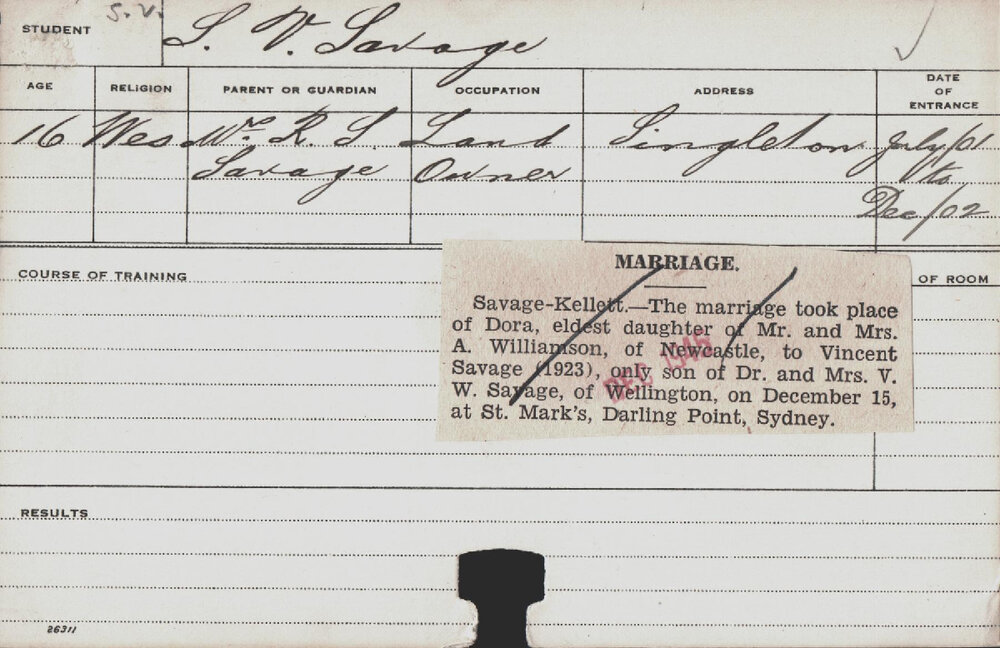 S.V.
STUDENT S. V. Savage
AGE RELIGION PARENT OR GUARDIAN OCCUPATION ADDRESS DATE OF ENTRANCE
16 Wes Mr. R. S. Land Singleton July/01
Savage Owner to
Dec/02
COURSE OF TRAINING
OF ROOM
MARRIAGE.
Savage-Kellett.—The marriage took place
of Dora, eldest daughter of Mr. and Mrs.
A. Williamson, of Newcastle, to Vincent
Savage (1923), only son of Dr. and Mrs. V.
W. Savage, of Wellington, on December 15,
at St. Mark's, Darling Point, Sydney.
DEC 1945
RESULTS
26311